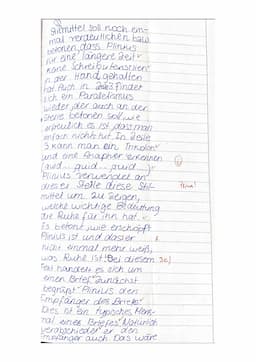 Stilmittel soll noch ein-
mal verdeutlichen bzw
betonen, dass Plinius
für eine "längere Zeit"
keine Schreibutensilien
in der Hand gehalten
hat. Auch in findet
sich ein Parallelismus
wieder, der auch an der
Stelle betonen soll, wie
es ist, dass man
einfach nichts tut. In Zeile
3 kann man ein Trikolon
und eine Anapher erkennen
(quid... quid... quid...)
Plinius verwendet an
dieser Stelle diese Stil-
mittel um zu zeigen,
welche wichtige Bedeutung
die Ruhe für ihn hat.
Es betont, wie erschöpft
Plinius ist und dass er
nicht einmal mehr weiß,
was Ruhe ist. Bei diesem
Text handelt es sich um
einen Brief. Zunächst
begrüßt Plinius den
Empfänger des Briefes.
Dies ist ein typisches Merk-
mal eines Briefes. Natürlich
verabschiedet er den
Empfänger auch. Das wäre